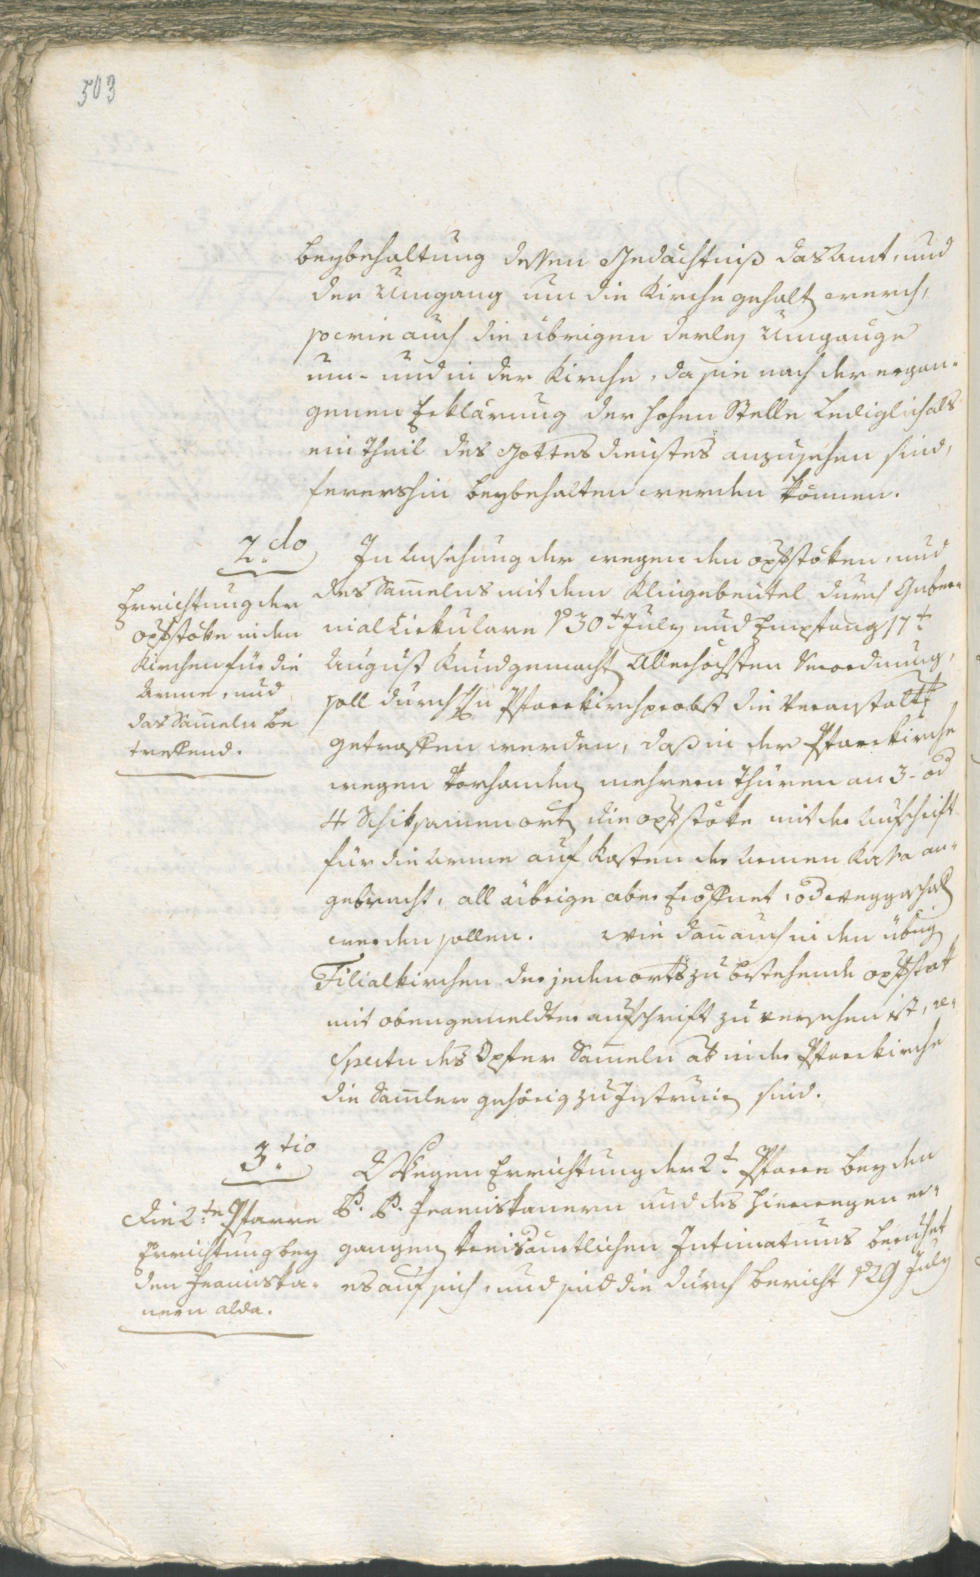 503
beybehaltung dessen Gedächtniß das Amt, und
der Umgang um die Kirche gehalt werd,
sowie auch die übrigen derley Umgange
um- und in der Kirche, da sie nach der ergan-
genen Erklärung der hohen Stelle lediglich als
ein Theil des Gottesdienstes anzusehen sind,
fernershin beybehalten werden können.
2.do
Errichtung der
opfstöke in den
Kirchen für die
Arme, und
das Sameln be
treffend.
In Ansehung der wegen den opfstöken, und
des Samelns mit dem Klingebeutel durch Guber-
nial Cirkulare 30t July und Empfang 17t
August kundgemacht Allerhöchsten Verordnung,
soll durch Pfarrkirchprobst die Veranstalt
getroffen werden, daß in der Pfarrkirche
wegen vorhanden mehrern Thüren an 3- od
4 Schiksamen ort die opfstöke mit der Aufschrift
für die Arme auf Kosten der Armen Kassa an-
gebracht, all übrige aber Eröffnet, od weggeschaft
werden sollen. wie dan auch in den übrig
Filialkirchen der jeden orts zu bestehende opfstok
mit obengemeldter aufschrift zu versehen ist, re-
spectu des Opfer Sameln ab in der Pfarrkirche
die Samler gehörig zu Instruir sind.
3.tio
die 2.te Pfarre
Errichtung bey
den Franciska-
nern alda.
Wegen Errichtung der 2.t Pfarre bey den
P. P. Franciskanern und des hierwegen er-
gangen kreisamtlichen Intimatums beruhet
es auf sich, und sind die durch bericht 29 July